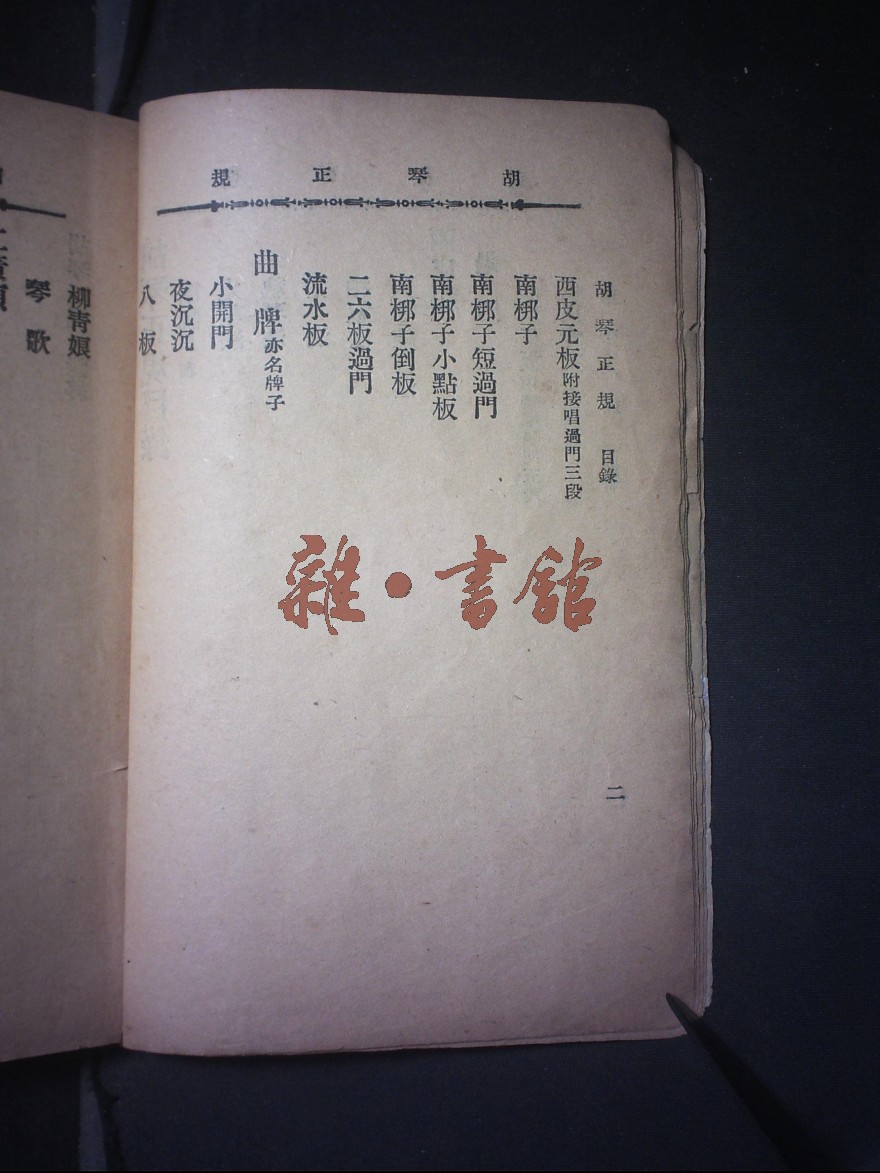 胡琴正規
胡琴正規 目錄
西皮元板附接唱過門三段
南梆子
南梆子短過門
南梆子小點板
南梆子倒板
二六板過門
流水板
曲牌亦名牌子
小開門
夜沉沉
八板
二
柳青娘
琴歌
雜·書館